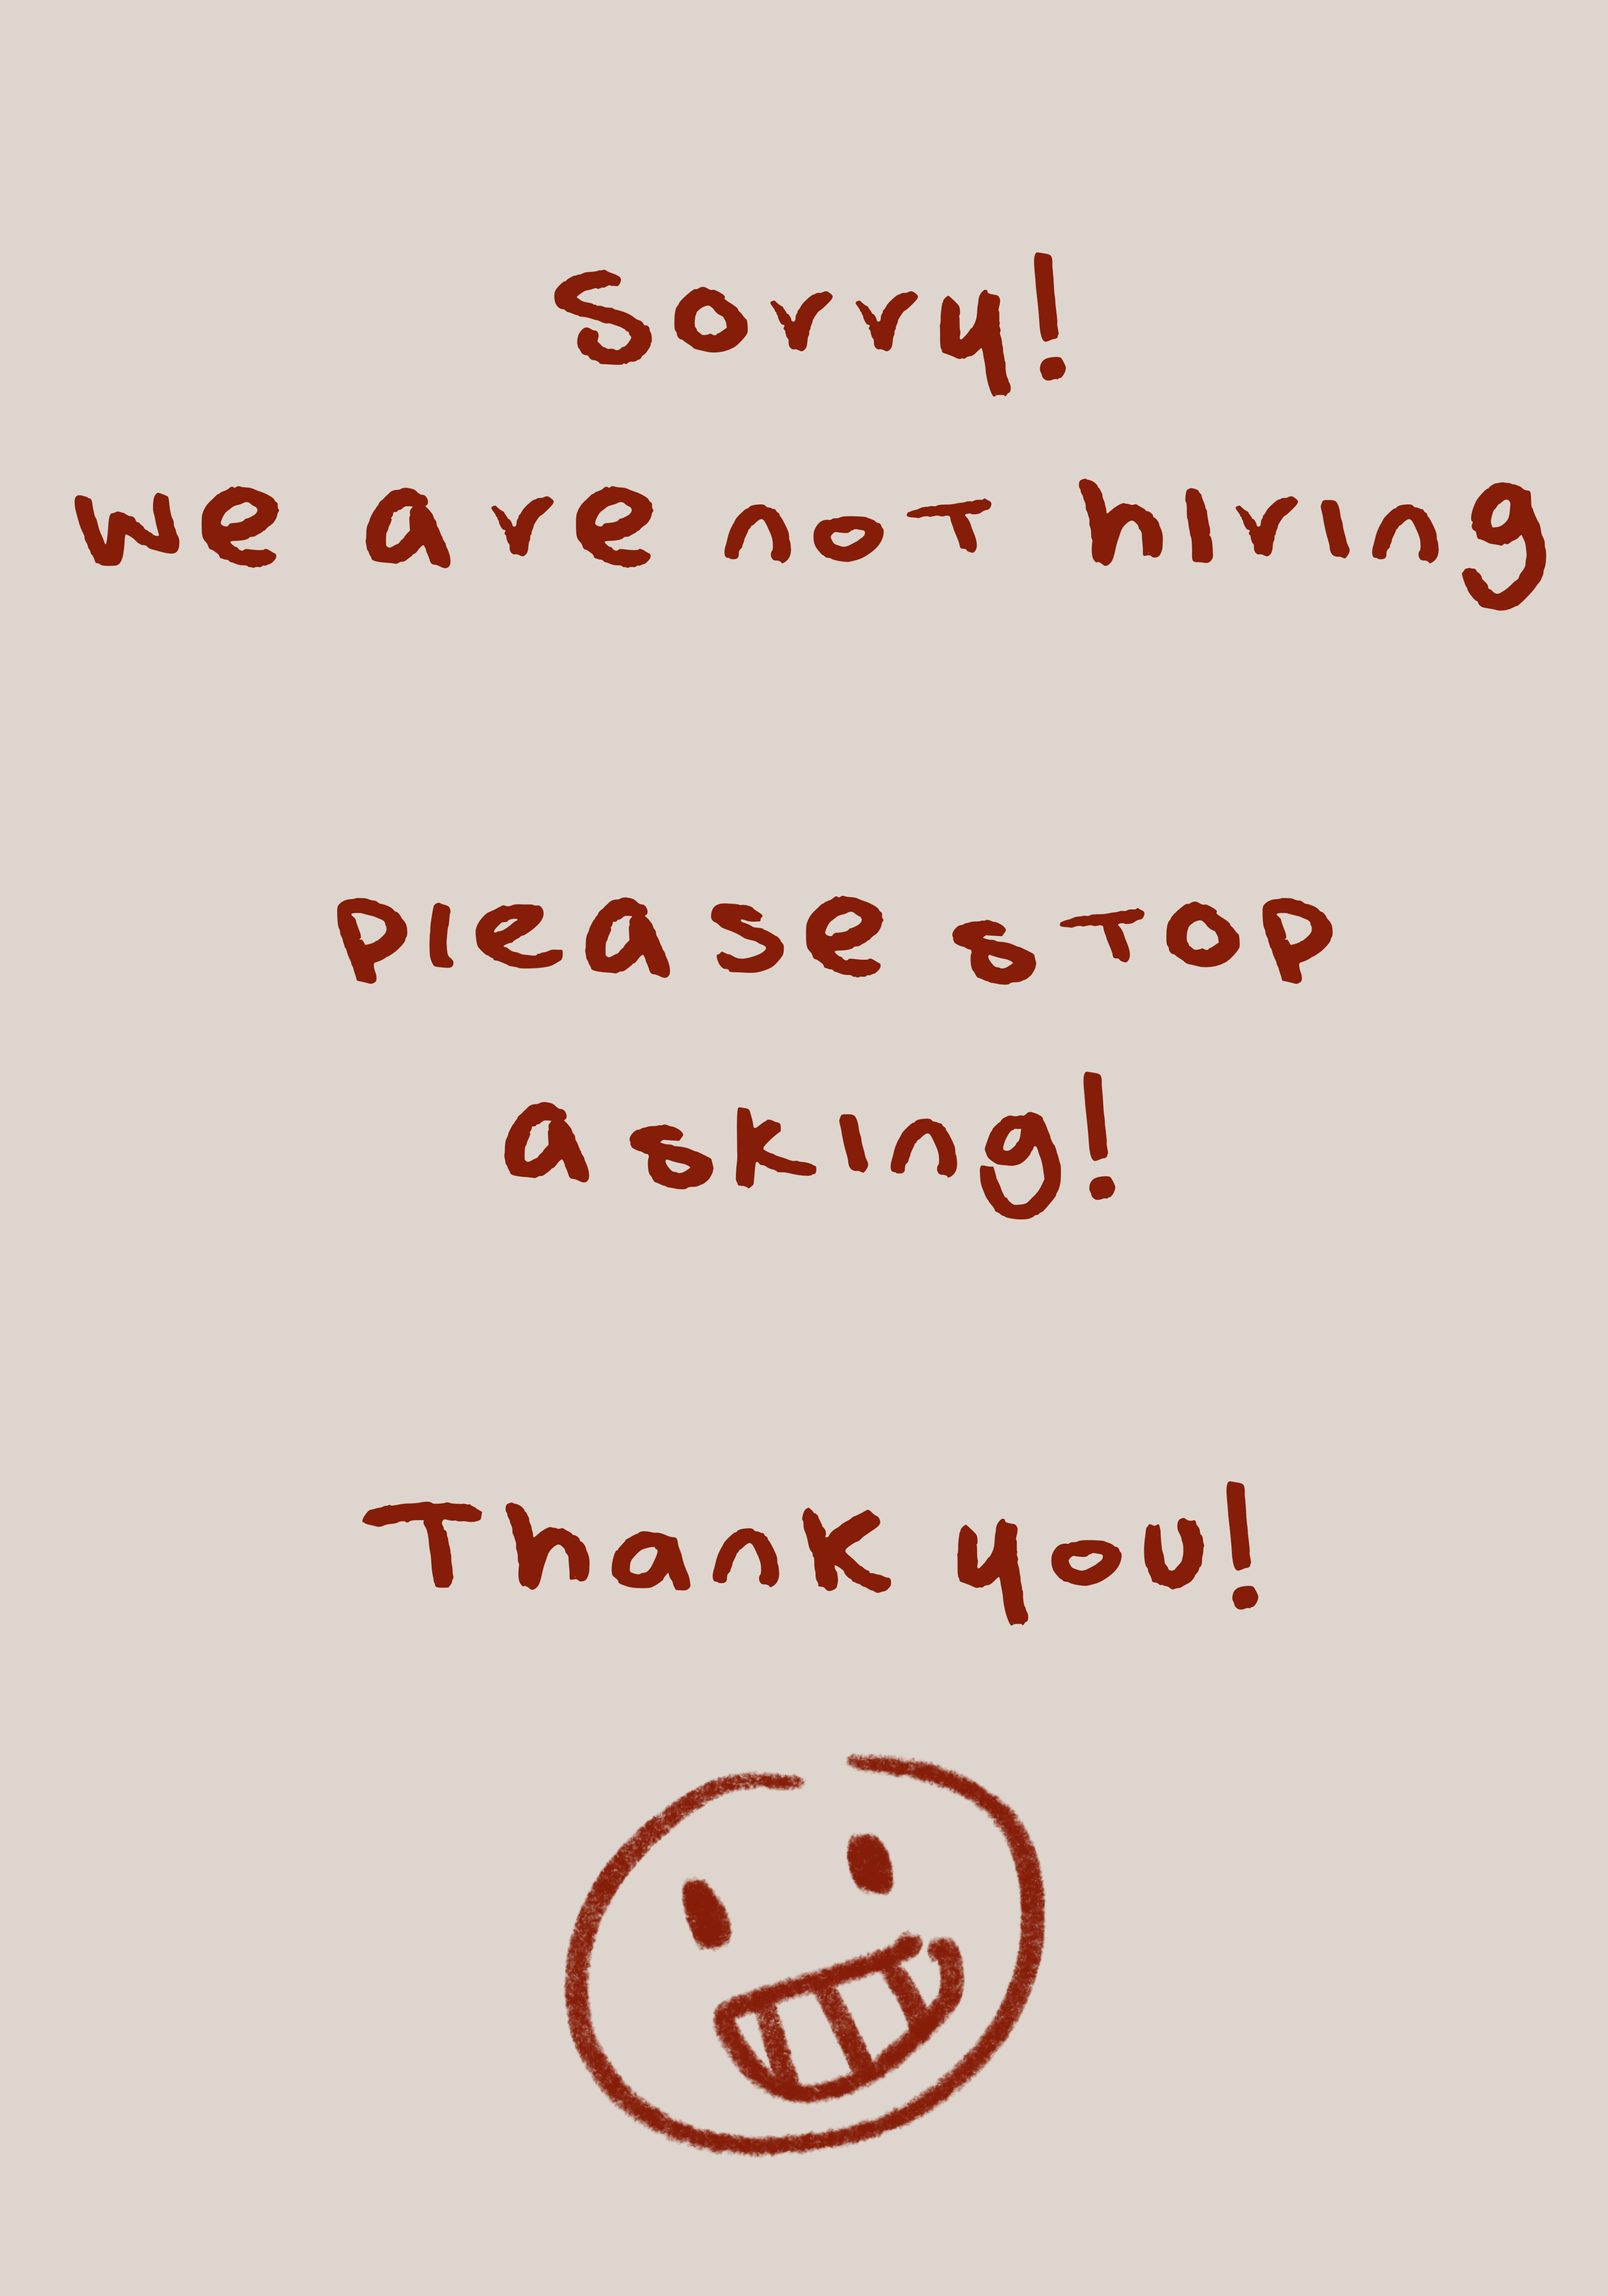 Sorry!
we are not hiring
please stop
asking!
Thank you!